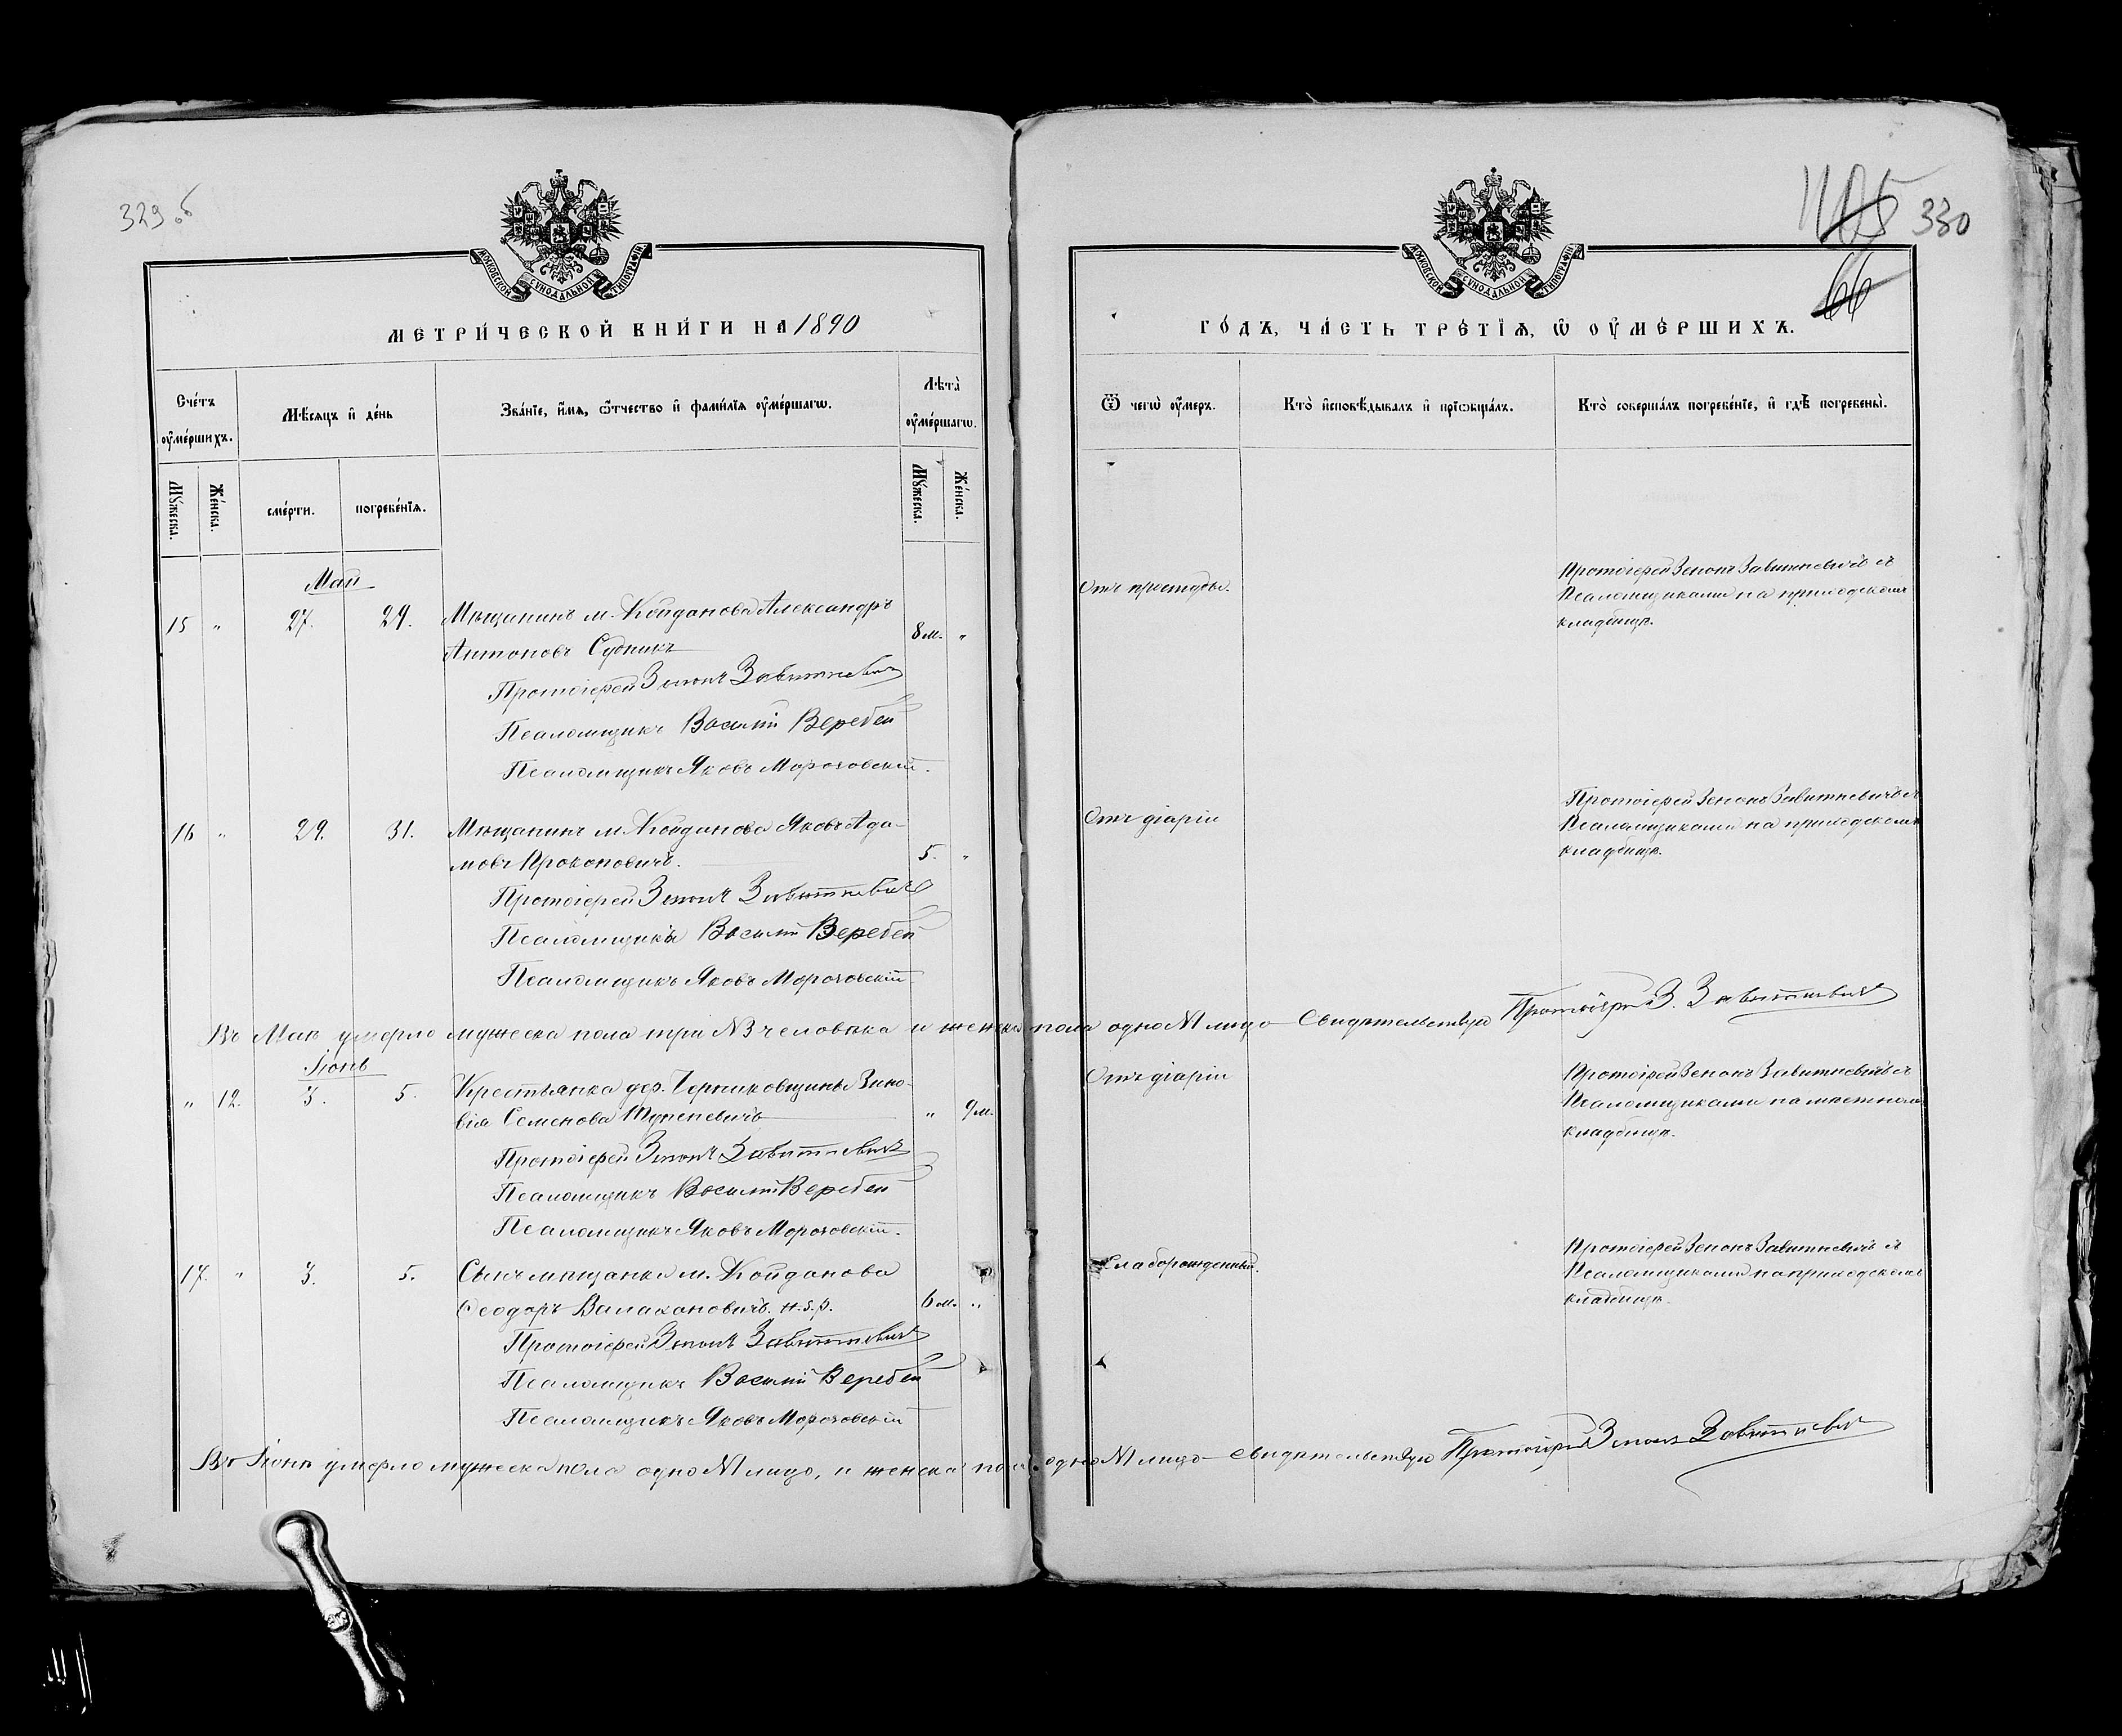 329 об
МОСКОВСКОЙ СѴНОДАЛЬНОЙ ТИПОГРАФІИ
МЕТРИ́ЧЕСКОЙ КНИ́ГИ НА 1890
Сче́тъ ᲂу҆ме́ршихъ.
Мѣ́сяцъ и҆ де́нь
Зва́нїе, и҆́мѧ, ѻ҆́тчество и҆ фамі́лїѧ ᲂу҆ме́ршагѡ.
Лѣ́та ᲂу҆ме́ршагѡ.
Мꙋ́жеска.
Же́нска.
сме́рти.
погребе́нїѧ.
Мꙋ́жеска.
Же́нска.
Май
15 " 27. 29. Мѣщанинъ м. Койданова Александръ
Антоновъ Судникъ 8 м. "
Протоіерей Зенонъ Завитневичъ
Псаломщикъ Василій Веребей
Псаломщикъ Яковъ Мороховскій.
16 " 29. 31. Мѣщанинъ м. Койданова Яковъ Ада-
мовъ Прокоповичъ. 5. "
Протоіерей Зенонъ Завитневичъ
Псаломщикъ Василій Веребей
Псаломщикъ Яковъ Мороховскій
Въ Маѣ умерло мужеска пола три №3 человѣка и женска пола одно №1 лицо Свидѣтельствую Протоіерей З. Завитневичъ
Іюнь
" 12. 3. 5. Крестьянка дер. Черниковщины Зино-
вія Семенова " 9 м.
Протоіерей Зенонъ Завитневичъ
Псаломщикъ Василій Веребей
Псаломщикъ Яковъ Мороховскій.
17. " 3. 5. Сынъ мѣщанки м. Койданова
Ѳеодоръ Валахановичъ. н.з.р. 6 м. "
Протоіерей Зенонъ Завитневичъ
Псаломщикъ Василій Веребей
Псаломщикъ Яковъ Мороховскій
Въ Іюнѣ умерло мужеска пола одно №1 лицо, и женска пола одно №1 лицо – свидѣтельствую Протоіерей Зенонъ Завитневичъ
330
66
МОСКОВСКОЙ СѴНОДАЛЬНОЙ ТИПОГРАФІИ
ГО́ДЪ, ЧА́СТЬ ТРЕ́ТЇѦ, Ѡ҆ ОУ҆МЕ́РШИХЪ.
Ѿ чегѡ̀ ᲂу҆́меръ.
Кто̀ и҆сповѣ́дывалъ и҆ прїѡбща́лъ.
Кто̀ соверша́лъ погребе́нїе, и҆ гдѣ̀ погребены̀.
Отъ простуды.
Протоіерей Зенонъ Завитневичъ съ
Псаломщиками на приходскомъ
кладбищѣ.
Отъ діаріи
Протоіерей Зенонъ Завитневичъ съ
Псаломщиками на приходскомъ
кладбищѣ.
Отъ діаріи
Протоіерей Зенонъ Завитневичъ съ
Псаломщиками на мѣстномъ
кладбищѣ.
Слаборожденный.
Протоіерей Зенонъ Завитневичъ съ
Псаломщиками на приходскомъ
кладбищѣ.